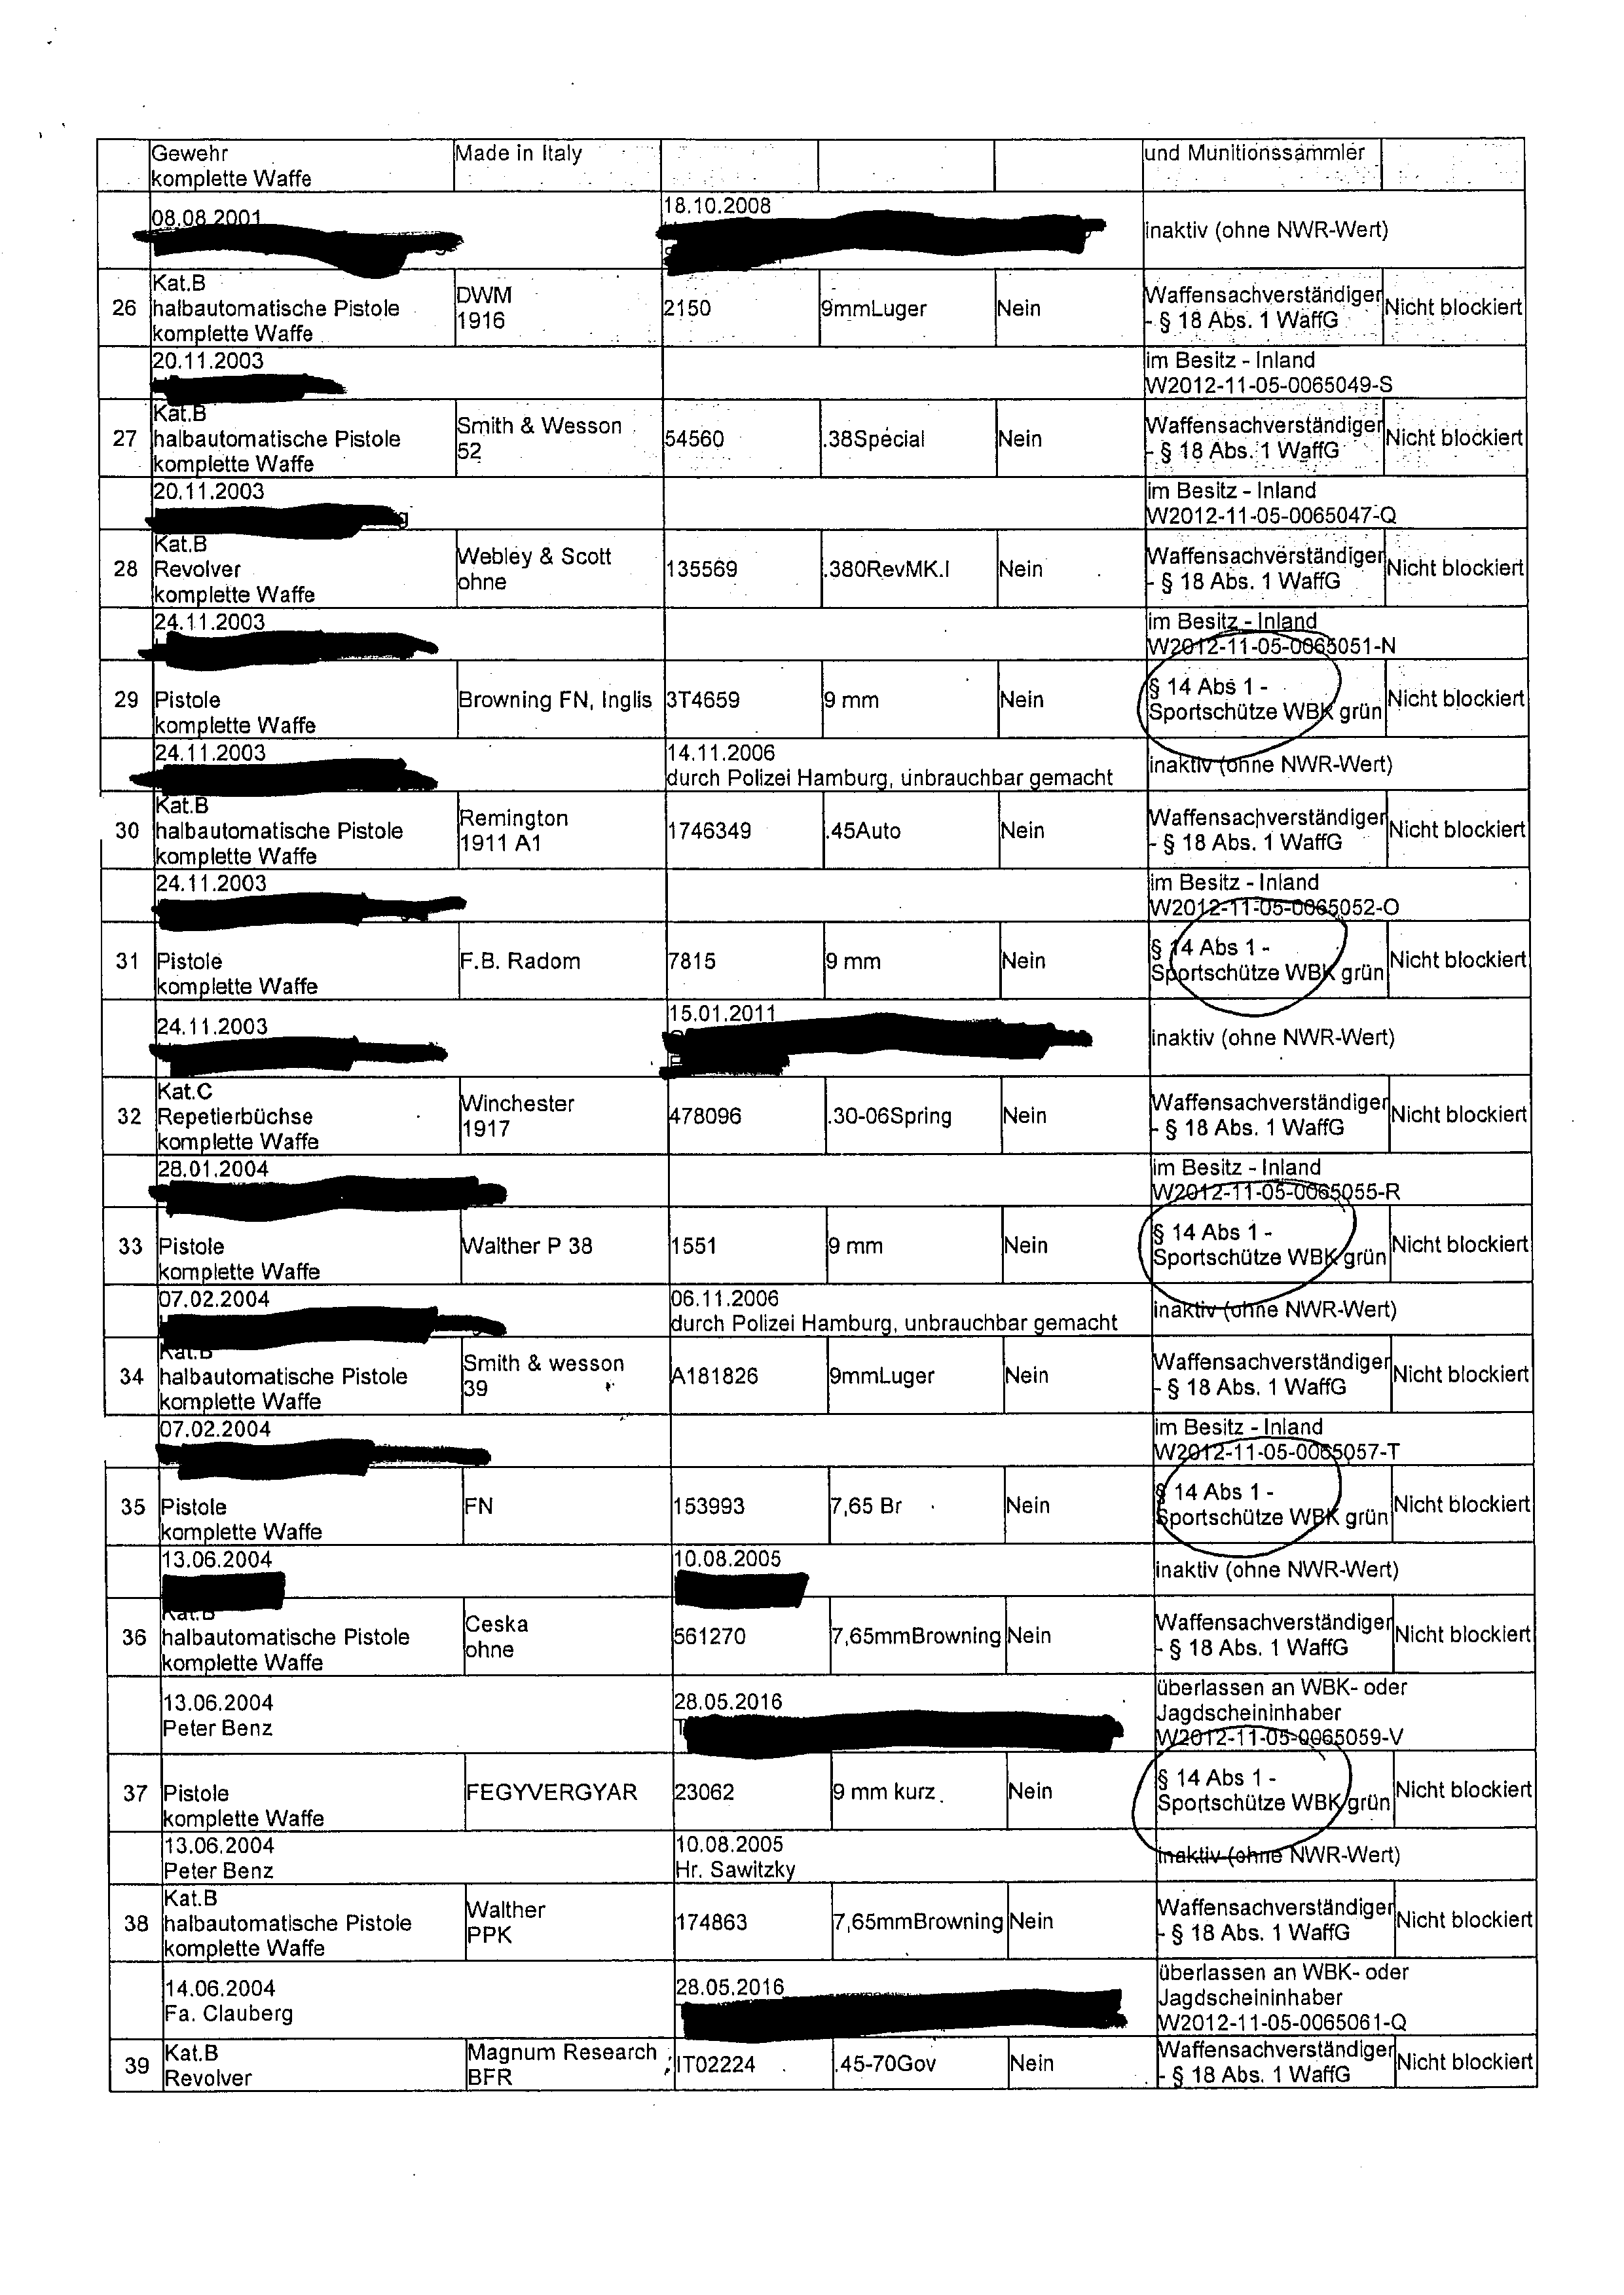 Gewehr
komplette Waffe
Made in Italy
und Munitionssammler
08.08.2001
18.10.2008
inaktiv (ohne NWR-Wert)
26
Kat.B
halbautomatische Pistole
komplette Waffe
DWM
1916
2150
9mmLuger
Nein
Waffensachverständiger
- § 18 Abs. 1 WaffG
Nicht blockiert
20.11.2003
im Besitz - Inland
W2012-11-05-0065049-S
27
Kat.B
halbautomatische Pistole
komplette Waffe
Smith & Wesson
52
54560
.38Special
Nein
Waffensachverständiger
- § 18 Abs. 1 WaffG
Nicht blockiert
20.11.2003
im Besitz - Inland
W2012-11-05-0065047-Q
28
Kat.B
Revolver
komplette Waffe
Webley & Scott
ohne
135569
.380RevMK.I
Nein
Waffensachverständiger
- § 18 Abs. 1 WaffG
Nicht blockiert
24.11.2003
im Besitz - Inland
W2012-11-05-0065051-N
29
Pistole
komplette Waffe
Browning FN, Inglis
3T4659
9 mm
Nein
§ 14 Abs 1 -
Sportschütze WBK grün
Nicht blockiert
24.11.2003
14.11.2006
durch Polizei Hamburg, unbrauchbar gemacht
inaktiv (ohne NWR-Wert)
30
Kat.B
halbautomatische Pistole
komplette Waffe
Remington
1911 A1
1746349
.45Auto
Nein
Waffensachverständiger
- § 18 Abs. 1 WaffG
Nicht blockiert
24.11.2003
im Besitz - Inland
W2012-11-05-0065052-O
31
Pistole
komplette Waffe
F.B. Radom
7815
9 mm
Nein
§ 14 Abs 1 -
Sportschütze WBK grün
Nicht blockiert
24.11.2003
15.01.2011
inaktiv (ohne NWR-Wert)
32
Kat.C
Repetierbüchse
komplette Waffe
Winchester
1917
478096
.30-06Spring
Nein
Waffensachverständiger
- § 18 Abs. 1 WaffG
Nicht blockiert
28.01.2004
im Besitz - Inland
W2012-11-05-0065055-R
33
Pistole
komplette Waffe
Walther P 38
1551
9 mm
Nein
§ 14 Abs 1 -
Sportschütze WBK grün
Nicht blockiert
07.02.2004
06.11.2006
durch Polizei Hamburg, unbrauchbar gemacht
inaktiv (ohne NWR-Wert)
34
Kat.B
halbautomatische Pistole
komplette Waffe
Smith & wesson
39
A181826
9mmLuger
Nein
Waffensachverständiger
- § 18 Abs. 1 WaffG
Nicht blockiert
07.02.2004
im Besitz - Inland
W2012-11-05-0065057-T
35
Pistole
komplette Waffe
FN
153993
7,65 Br
Nein
§ 14 Abs 1 -
Sportschütze WBK grün
Nicht blockiert
13.06.2004
10.08.2005
inaktiv (ohne NWR-Wert)
36
Kat.B
halbautomatische Pistole
komplette Waffe
Ceska
ohne
561270
7,65mmBrowning
Nein
Waffensachverständiger
- § 18 Abs. 1 WaffG
Nicht blockiert
13.06.2004
Peter Benz
28.05.2016
überlassen an WBK- oder
Jagdscheininhaber
W2012-11-05-0065059-V
37
Pistole
komplette Waffe
FEGYVERGYAR
23062
9 mm kurz
Nein
§ 14 Abs 1 -
Sportschütze WBK grün
Nicht blockiert
13.06.2004
Peter Benz
10.08.2005
Hr. Sawitzky
inaktiv (ohne NWR-Wert)
38
Kat.B
halbautomatische Pistole
komplette Waffe
Walther
PPK
174863
7,65mmBrowning
Nein
Waffensachverständiger
- § 18 Abs. 1 WaffG
Nicht blockiert
14.06.2004
Fa. Clauberg
28.05.2016
überlassen an WBK- oder
Jagdscheininhaber
W2012-11-05-0065061-Q
39
Kat.B
Revolver
Magnum Research
BFR
IT02224
.45-70Gov
Nein
Waffensachverständiger
- § 18 Abs. 1 WaffG
Nicht blockiert